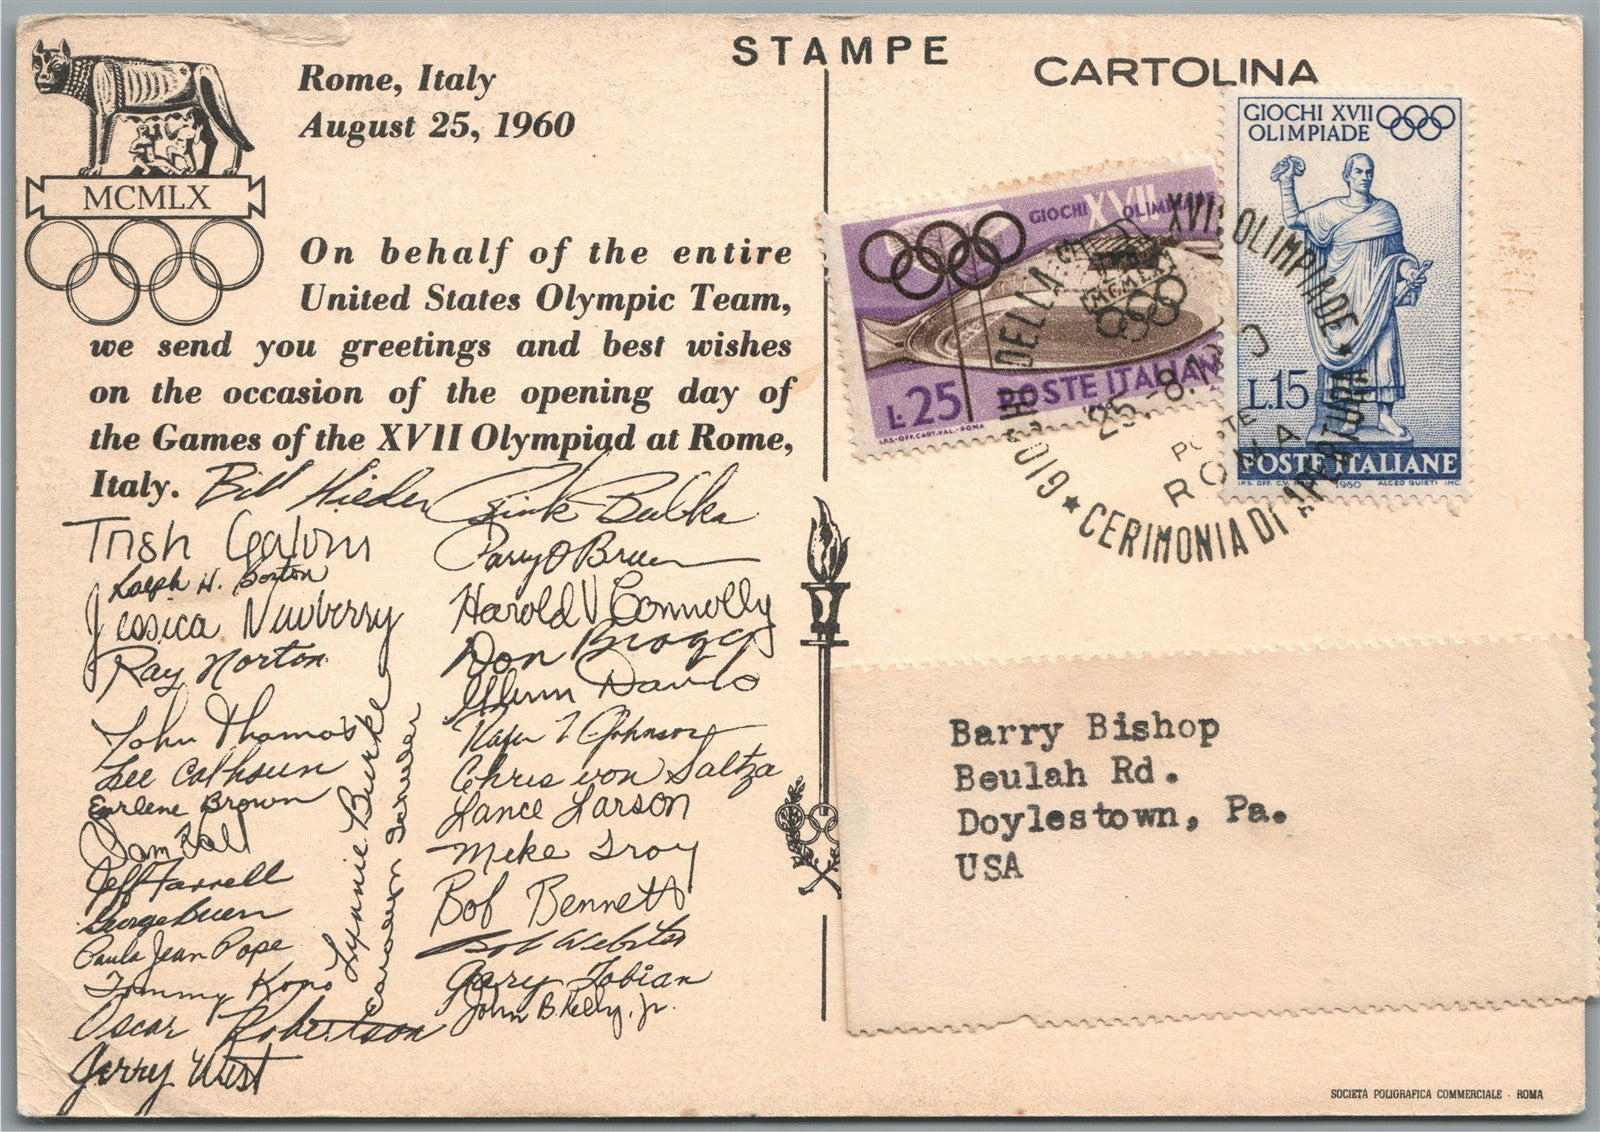 STAMPE
CARTOLINA
MCMLX
Rome, Italy
August 25, 1960
On behalf of the entire
United States Olympic Team,
we send you greetings and best wishes
on the occasion of the opening day of
the Games of the XVII Olympiad at Rome,
Italy.
Bill
Trish
Ralph H. Boston
Jessica Newberry
Ray Norton
John Thomas
Lee Calhoun
Earlene Brown
Sam Hall
Jeff Farrell
George Breen
Paula Jean Pope
Tommy Kono
Oscar Robertson
Jerry West
Lynnie Burke
Carolyn Schuler
Parry O'Brien
Harold V Connolly
Don Bragg
Glenn Davis
Rafer L Johnson
Chris von Saltza
Lance Larson
Mike Troy
Bob Bennett
Bob Webster
Gary Tobian
John B. Kelly, Jr.
GIOCHI XVII OLIMPIADE
L. 25
POSTE ITALIANE
I.P.S.-OFF. CART. VAL.-ROMA
GIOCHI XVII
OLIMPIADE
L.15
POSTE ITALIANE
1960
GIOCHI DELLA XVII OLIMPIADE
CERIMONIA DI APERTURA
MCMLX
25-8-1960
POSTE
ROMA
Barry Bishop
Beulah Rd.
Doylestown, Pa.
USA
SOCIETÀ POLIGRAFICA COMMERCIALE - ROMA